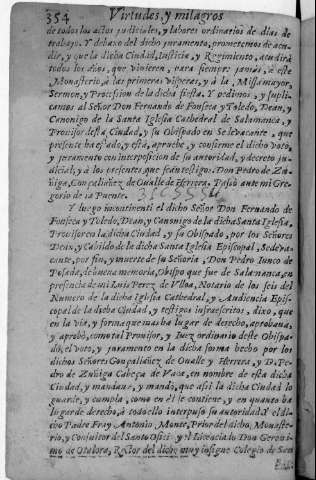 354 Virtudes, y milagros
de todos los actos judiciales, y labores ordinarias de dias de
trabajo. Y debaxo del dicho juramento, prometemos de acu-
dir, y que la dicha Ciudad, Iusticia, y Regimiento, acudirà
todos los años, que vinieren, para siempre jamàs, à este
Monasterio, à las primeras visperas, y à la Missa mayor,
Sermon, y Procession de la dicha fiesta. Y pedimos, y supli-
camos al Señor Don Fernando de Fonseca y Toledo, Dean, y
Canonigo de la Santa Iglesia Cathedral de Salamanca, y
Provisor desta Ciudad, y su Obispado en Sedevacante, que
presente ha estado, y està, aprueve, y confirme el dicho voto,
y juramento con interposicion de su autoridad, y decreto ju-
dicial, y à los presentes, que sean testigos. Don Pedro de Zu-
ñiga, Gonçaliañez de Oualle de Herrera. Passò ante mi Gre-
gorio de la Puente.
Y luego incontinenti el dicho Señor Don Fernando de
Fonseca y Toledo, Dean, y Canonigo de la dicha Santa Iglesia,
Provisor en la dicha Ciudad, y su Obispado, por los Señores
Dean, y Cabildo de la dicha Santa Iglesia Episcopal, Sedeva-
cante, por fin, y muerte de su Señoria, Don Pedro Iunco de
Posada, de buena memoria, Obispo que fue de Salamanca, en
presencia de mi Luis Perez de Vlloa, Notario de los seis del
Numero de la dicha Iglesia Cathedral, y Audiencia Epis-
copal de la dicha Ciudad, y testigos infraescritos, dixo, que
en la via, y forma que mas ha lugar de derecho, aprobaua,
y aprobò, como tal Provisor, y Iuez ordinario deste Obispa-
do, el voto, y juramento en la dicha forma hecho por los
dichos Señores Gonçaliañez de Oualle y Herrera, y D. Pe-
dro de Zuñiga Cabeça de Vaca, en nombre de esta dicha
Ciudad, y mandaua, y mandò, que assi la dicha Ciudad lo
guarde, y cumpla, como en el se contiene, y en quanto ha
lugar de derecho, à todo ello interpuso su autoridad. Y el di-
cho Padre Fray Antonio Monte, Prior del dicho Monaste-
rio, y Consultor del Santo Ofici- y el Licenciado Don Geroni-
mo de Otalora, Rector del dicho muy insigne Colegio de San